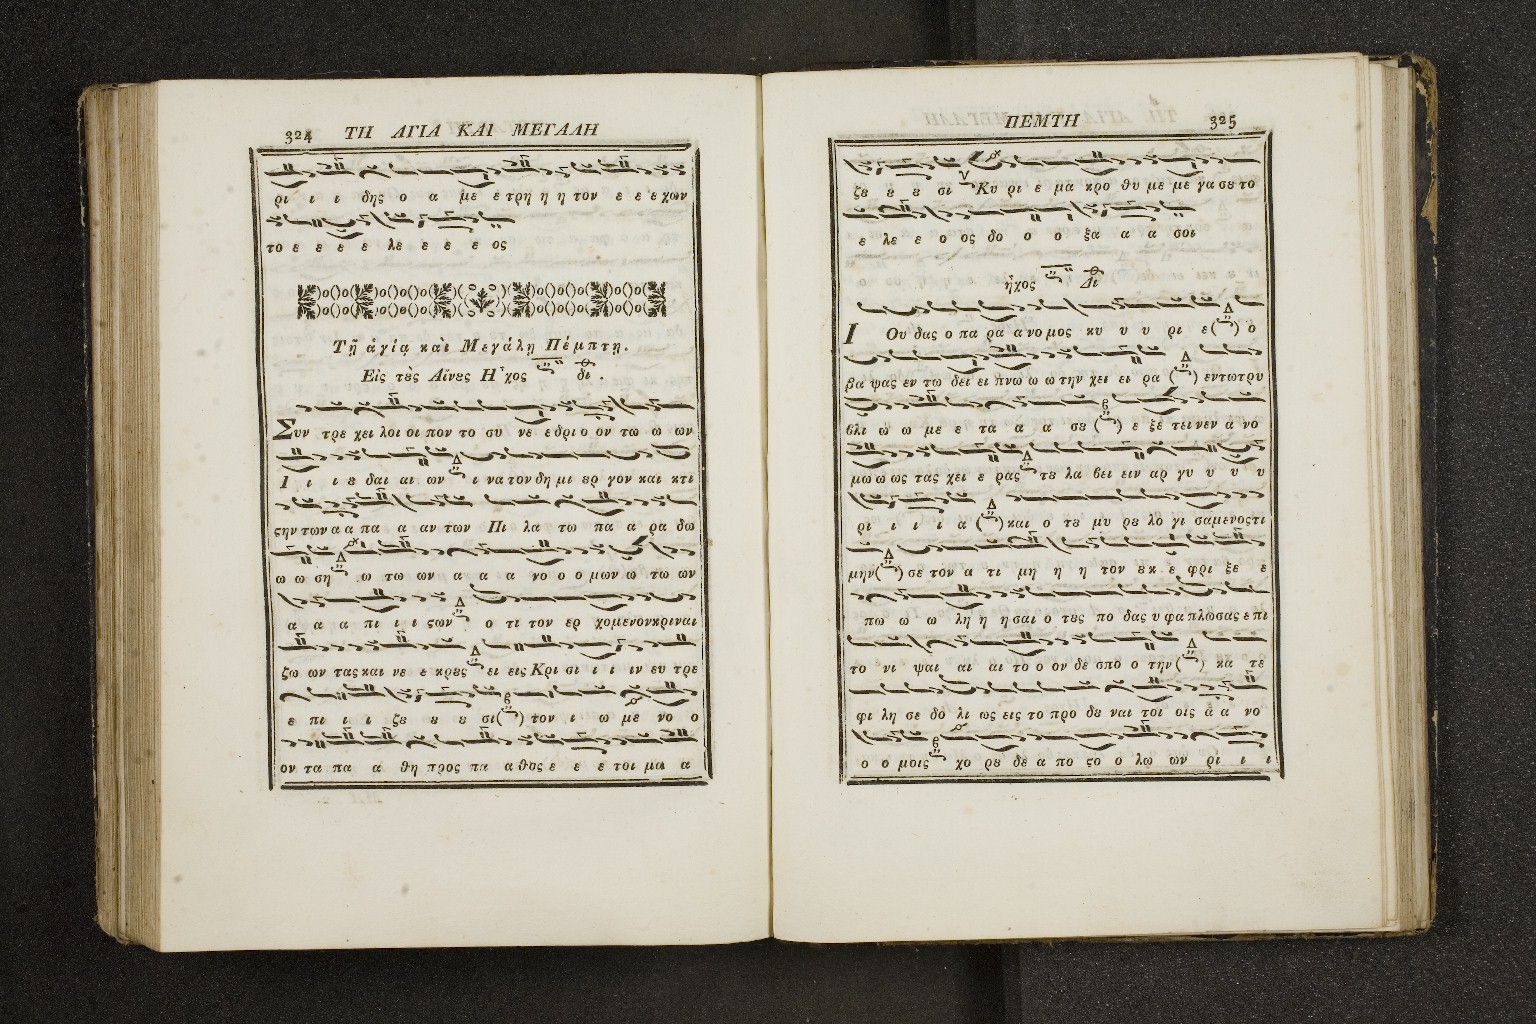 324 ΤΗ ΑΓΙΑ ΚΑΙ ΜΕΓΑΛΗ
ρι ι ι δης ο α με ε τρη η η τον ε ε ε χων
το ε ε ε ε λε ε ε ε ος
Τῇ ἁγίᾳ καὶ Μεγάλῃ Πέμπτῃ.
Εἰς τȣ̀ς Αἴνȣς Ἦχος δι.
Συν τρε χει λοι οι πον το συ νε ε δρι ο ον τω ω ων
Ι ι ι ȣ δαι αι ων ι να τον δη μι ȣρ γον και κτι
ςην των α α πα α αν των Πι λα τω πα α ρα δω
ω ω ση ω τω ων α α α νο ο ο μων ω τω ων
α α α πι ι ι ςων ο τι τον ερ χομενονκριναι
ζω ων τας και νε ε κρȣς ει εις Κρι σι ι ι ιν ευ τρε
ε πι ι ι ζȣ ȣ ȣ σι( ) τον ι ω με νο ο
ον τα πα α θη προς πα α θȣς ε ε ε τοι μα α
ΠΕΜΤΗ 325
ζȣ ȣ ȣ σι Κυ ρι ε μα κρο θυ με με γα σȣ το
ε λε ε ο ος δο ο ο ξα α α σοι
ἦχος Δι
ΙΟυ δας ο πα ρα α νο μος κυ υ υ ρι ε( ) ο
βα ψας εν τω δει ει πνω ω ω την χει ει ρα ( ) εντωτρυ
βλι ω ω με ε τα α α σȣ ( ) ε ξε τει νεν α νο
μω ω ως τας χει ε ρας τȣ λα βει ειν αρ γυ υ υ υ
ρι ι ι ι α ( ) και ο τȣ μυ ρȣ λο γι σαμενοςτι
μην( ) σε τον α τι μη η η τον ȣκ ε φρι ξε ε
πω ω ω λη η η σαι ο τȣς πο δας υ φα πλωσας ε πι
το νι ψαι αι αι το ο ον δε σπο ο την( ) κα τε
φι λη σε δο λι ως εις το προ δȣ ναι τοι οις α α νο
ο ο μοις χο ρȣ δε α πο ςο ο λω ων ρι ι ι